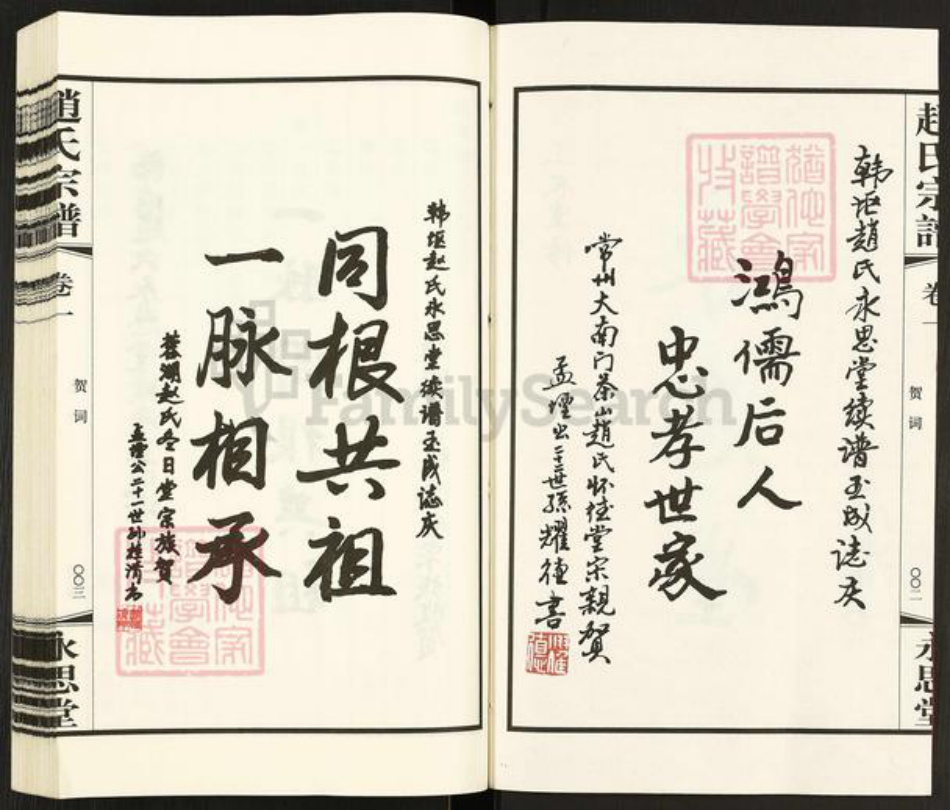 趙氏宗譜
卷一
贺词
〇〇二
永思堂
韩垭趙氏永思堂续谱玉成誌庆
鴻儒后人
忠孝世家
常州大南门茶山趙氏怀德堂宗親贺
孟堙公二十世孫耀德書
韩垭赵氏永思堂续谱玉成誌庆
同根共祖
一脉相承
蓉湖赵氏冬日堂宗族贺
孟堙公二十一世孙
趙氏宗譜
卷一
贺词
〇〇三
永思堂
FamilySearch